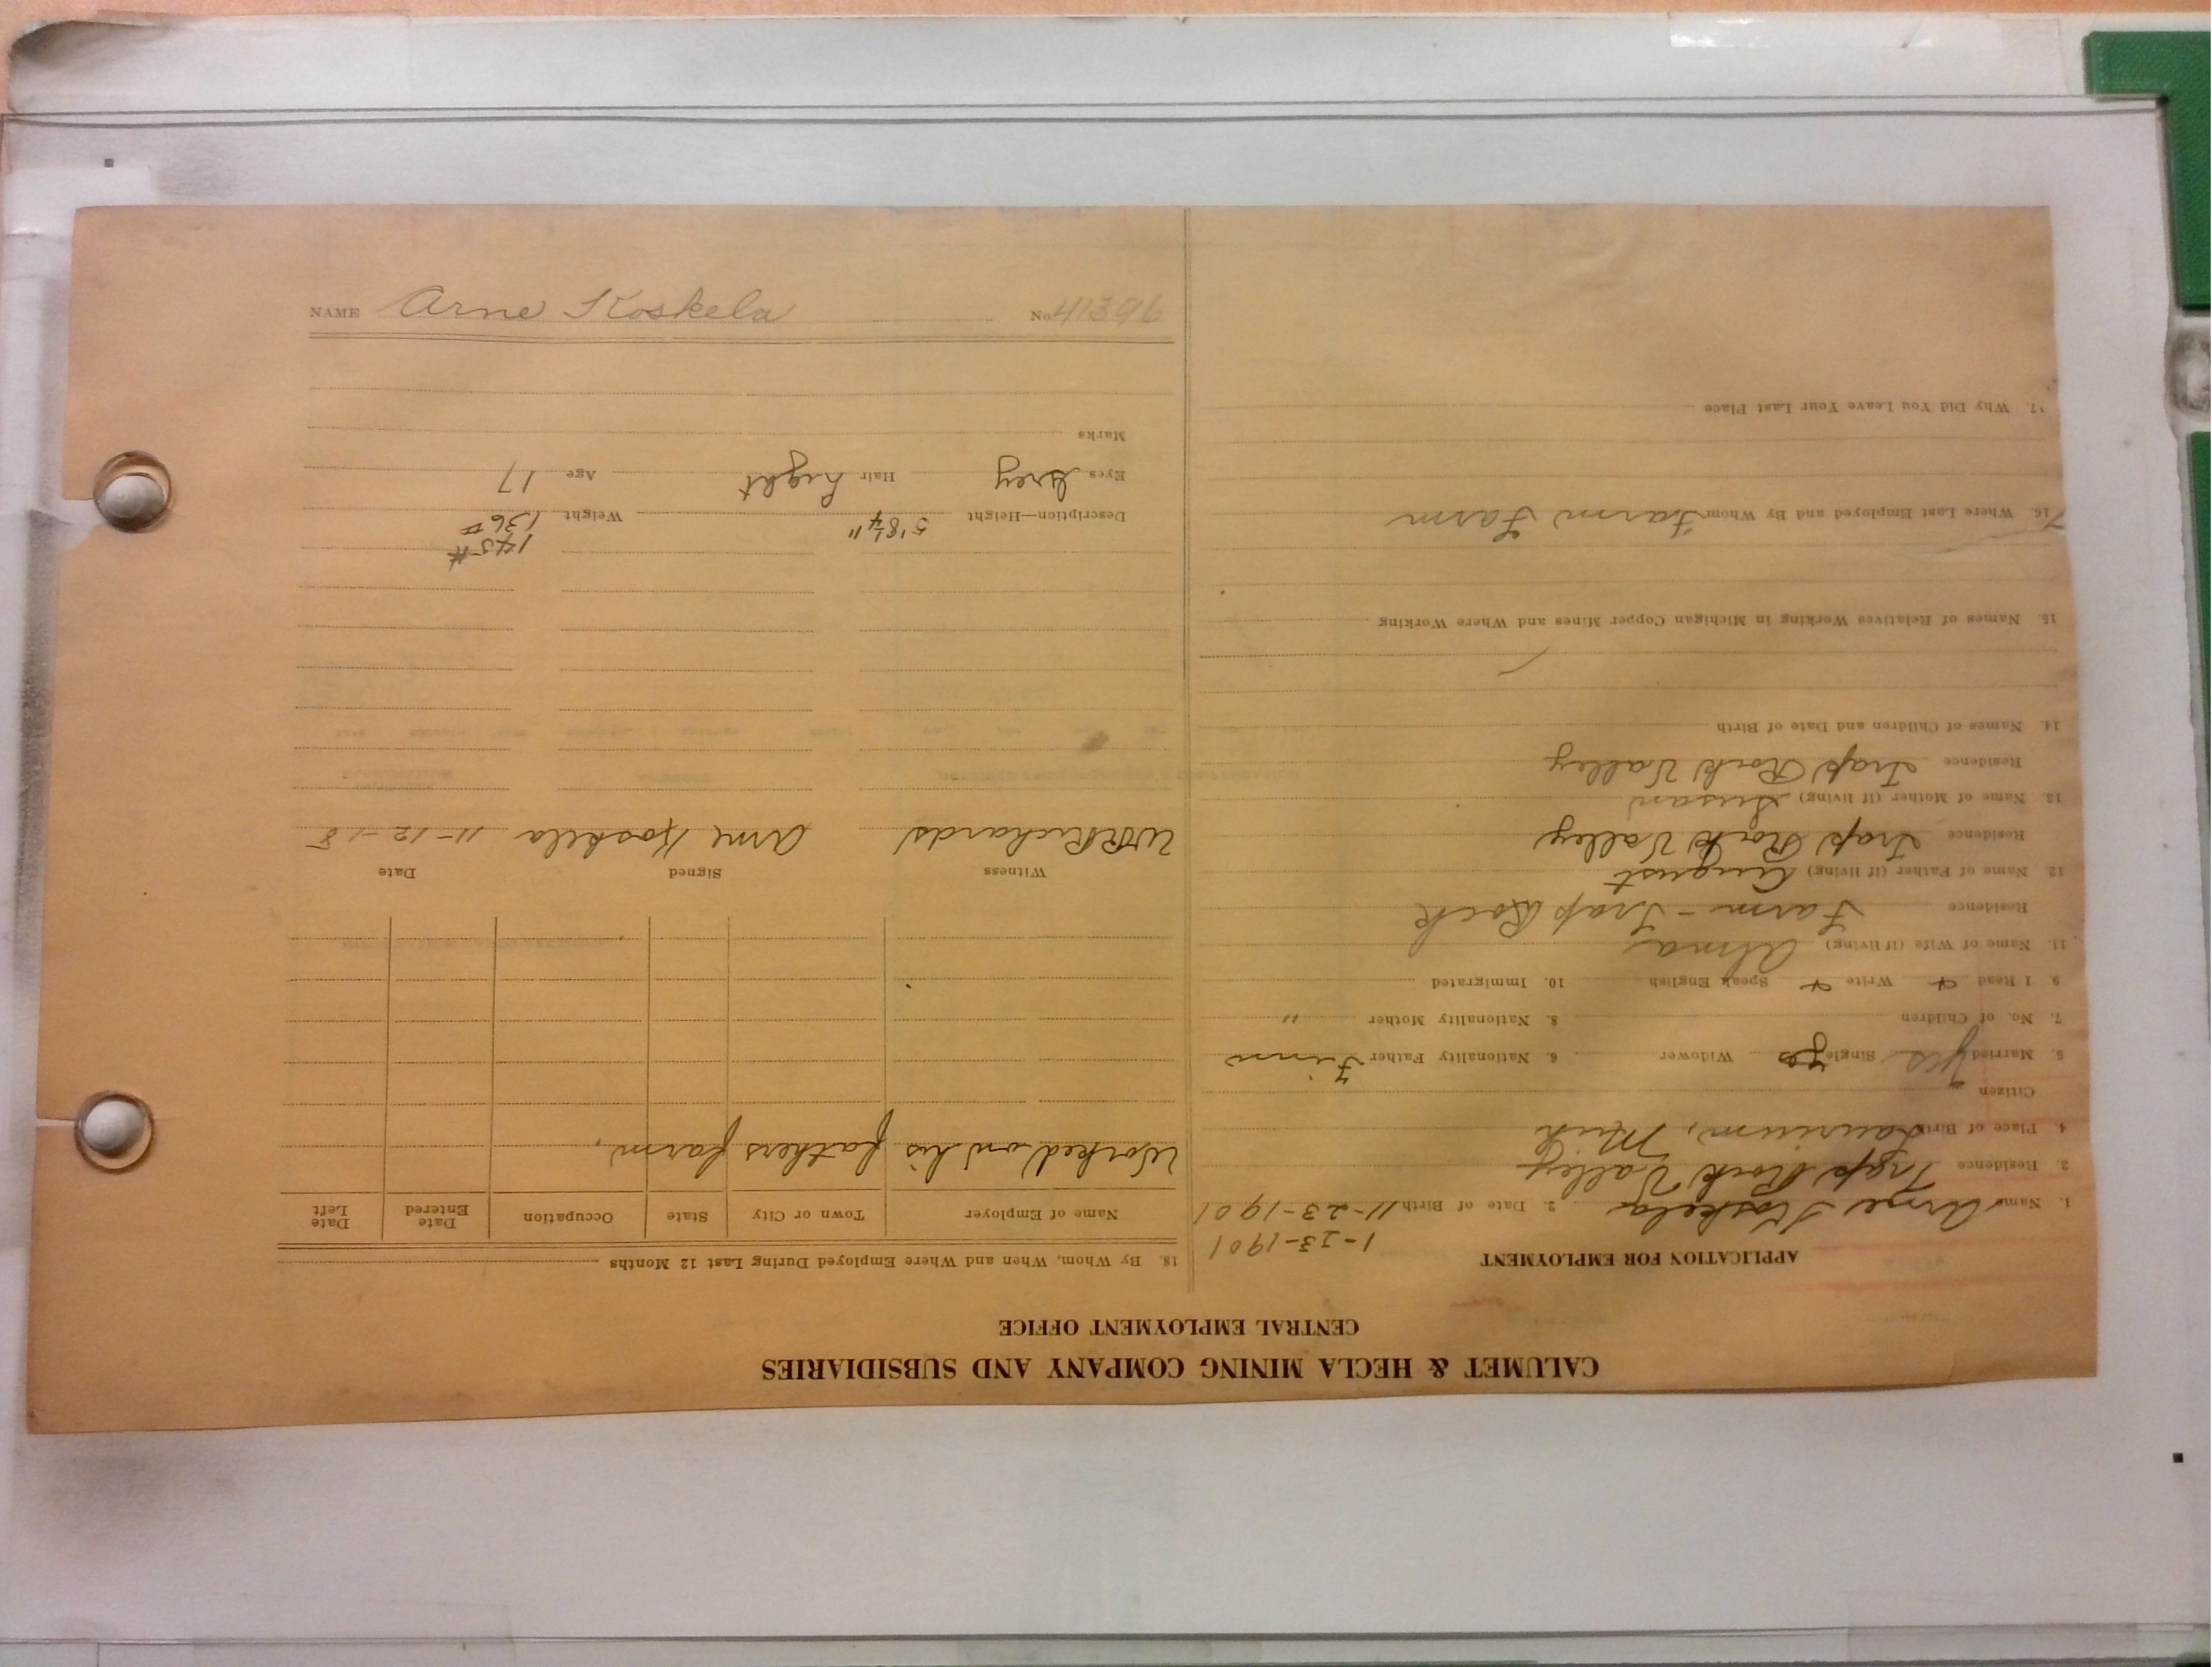 CALUMET & HECLA MINING COMPANY AND SUBSIDIARIES
CENTRAL EMPLOYMENT OFFICE
APPLICATION FOR EMPLOYMENT
1-23-1901
1. Name Arne Koskela 2. Date of Birth 11-23-1901
3. Residence Trap Rock Valley
4. Place of Birth Laurium, Mich
Citizen
5. Married yes Single yes Widower 6. Nationality Father Finn
7. No. of Children 8. Nationality Mother "
9. I Read + Write + Speak English 10. Immigrated
11. Name of Wife (if living) Alma
Residence Farm - Trap Rock
12. Name of Father (if living) August
Residence Trap Rock Valley
13. Name of Mother (if living) Susan
Residence Trap Rock Valley
14. Names of Children and Date of Birth
15. Names of Relatives Working in Michigan Copper Mines and Where Working
16. Where Last Employed and By Whom Farm Farm
17. Why Did You Leave Your Last Place
18. By Whom, When and Where Employed During Last 12 Months
Name of Employer Town or City State Occupation Date Entered Date Left
Worked on his fathers farm.
Witness Signed Date
WR Richards Arne Koskela 11-12-18
145 #
Description—Height 5' 8 1/4" Weight 136 #
Eyes Grey Hair Light Age 17
Marks
NAME Arne Koskela No. 41396